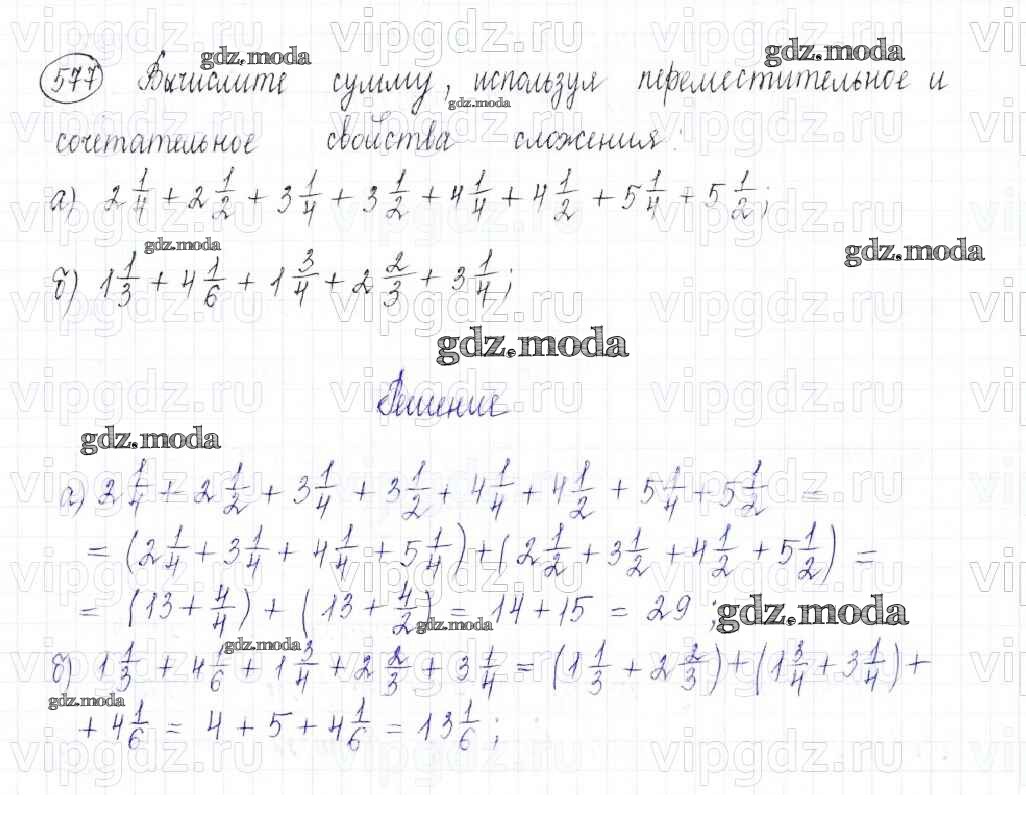 577 Вычислите сумму, используя переместительное и
сочетательное свойства сложения:
а) 2 1/4 + 2 1/2 + 3 1/4 + 3 1/2 + 4 1/4 + 4 1/2 + 5 1/4 + 5 1/2;
б) 1 1/3 + 4 1/6 + 1 3/4 + 2 2/3 + 3 1/4;
Решение
а) 2 1/4 + 2 1/2 + 3 1/4 + 3 1/2 + 4 1/4 + 4 1/2 + 5 1/4 + 5 1/2 =
= (2 1/4 + 3 1/4 + 4 1/4 + 5 1/4) + (2 1/2 + 3 1/2 + 4 1/2 + 5 1/2) =
= (13 + 4/4) + (13 + 4/2) = 14 + 15 = 29;
б) 1 1/3 + 4 1/6 + 1 3/4 + 2 2/3 + 3 1/4 = (1 1/3 + 2 2/3) + (1 3/4 + 3 1/4) +
+ 4 1/6 = 4 + 5 + 4 1/6 = 13 1/6;
gdz.moda
vipgdz.ru